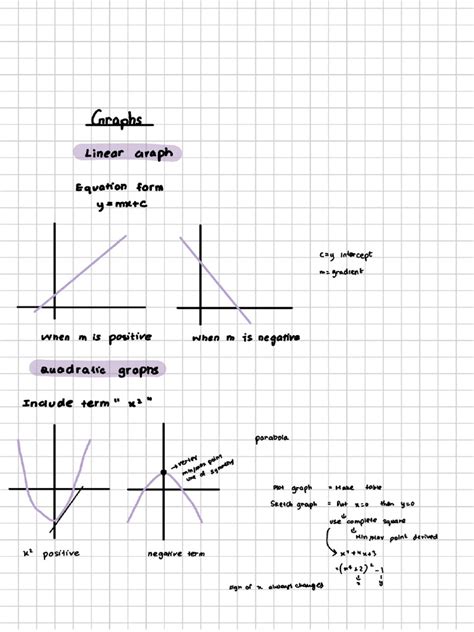 Graphs
Linear Graph
Equation form
y=mx+c
c=y intercept
m=gradient
when m is positive
when m is negative
Quadratic graphs
Include term "x²"
parabola
vertex
min/max point
line of symmetry
x² positive
negative term
Plot graph = Make table
Sketch graph = Put x=0 then y=0
use complete square
Min/Max point derived
x²+4x+3
=(x²+2)²-1
x y
sign of x always changes